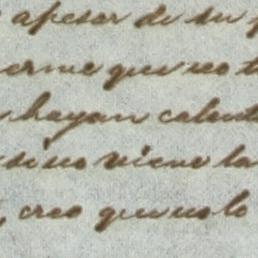 apesar de su
que no
hayan calent
si no viene la
, creo que no lo